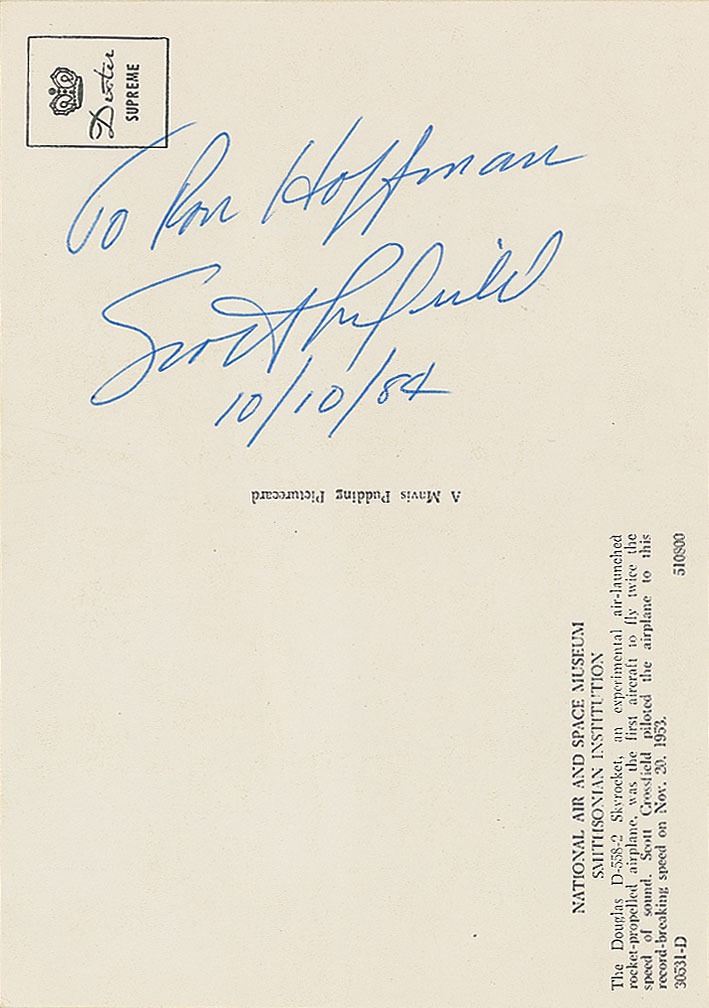 Dexter
SUPREME
To Ron Hoffman
Scott Crossfield
10/10/84
A Mavis Pudding Picturecard
NATIONAL AIR AND SPACE MUSEUM
SMITHSONIAN INSTITUTION
The Douglas D-558-2 Skyrocket, an experimental air-launched
rocket-propelled airplane, was the first aircraft to fly twice the
speed of sound. Scott Crossfield piloted the airplane to this
record-breaking speed on Nov. 20, 1953.
30531-D 510800